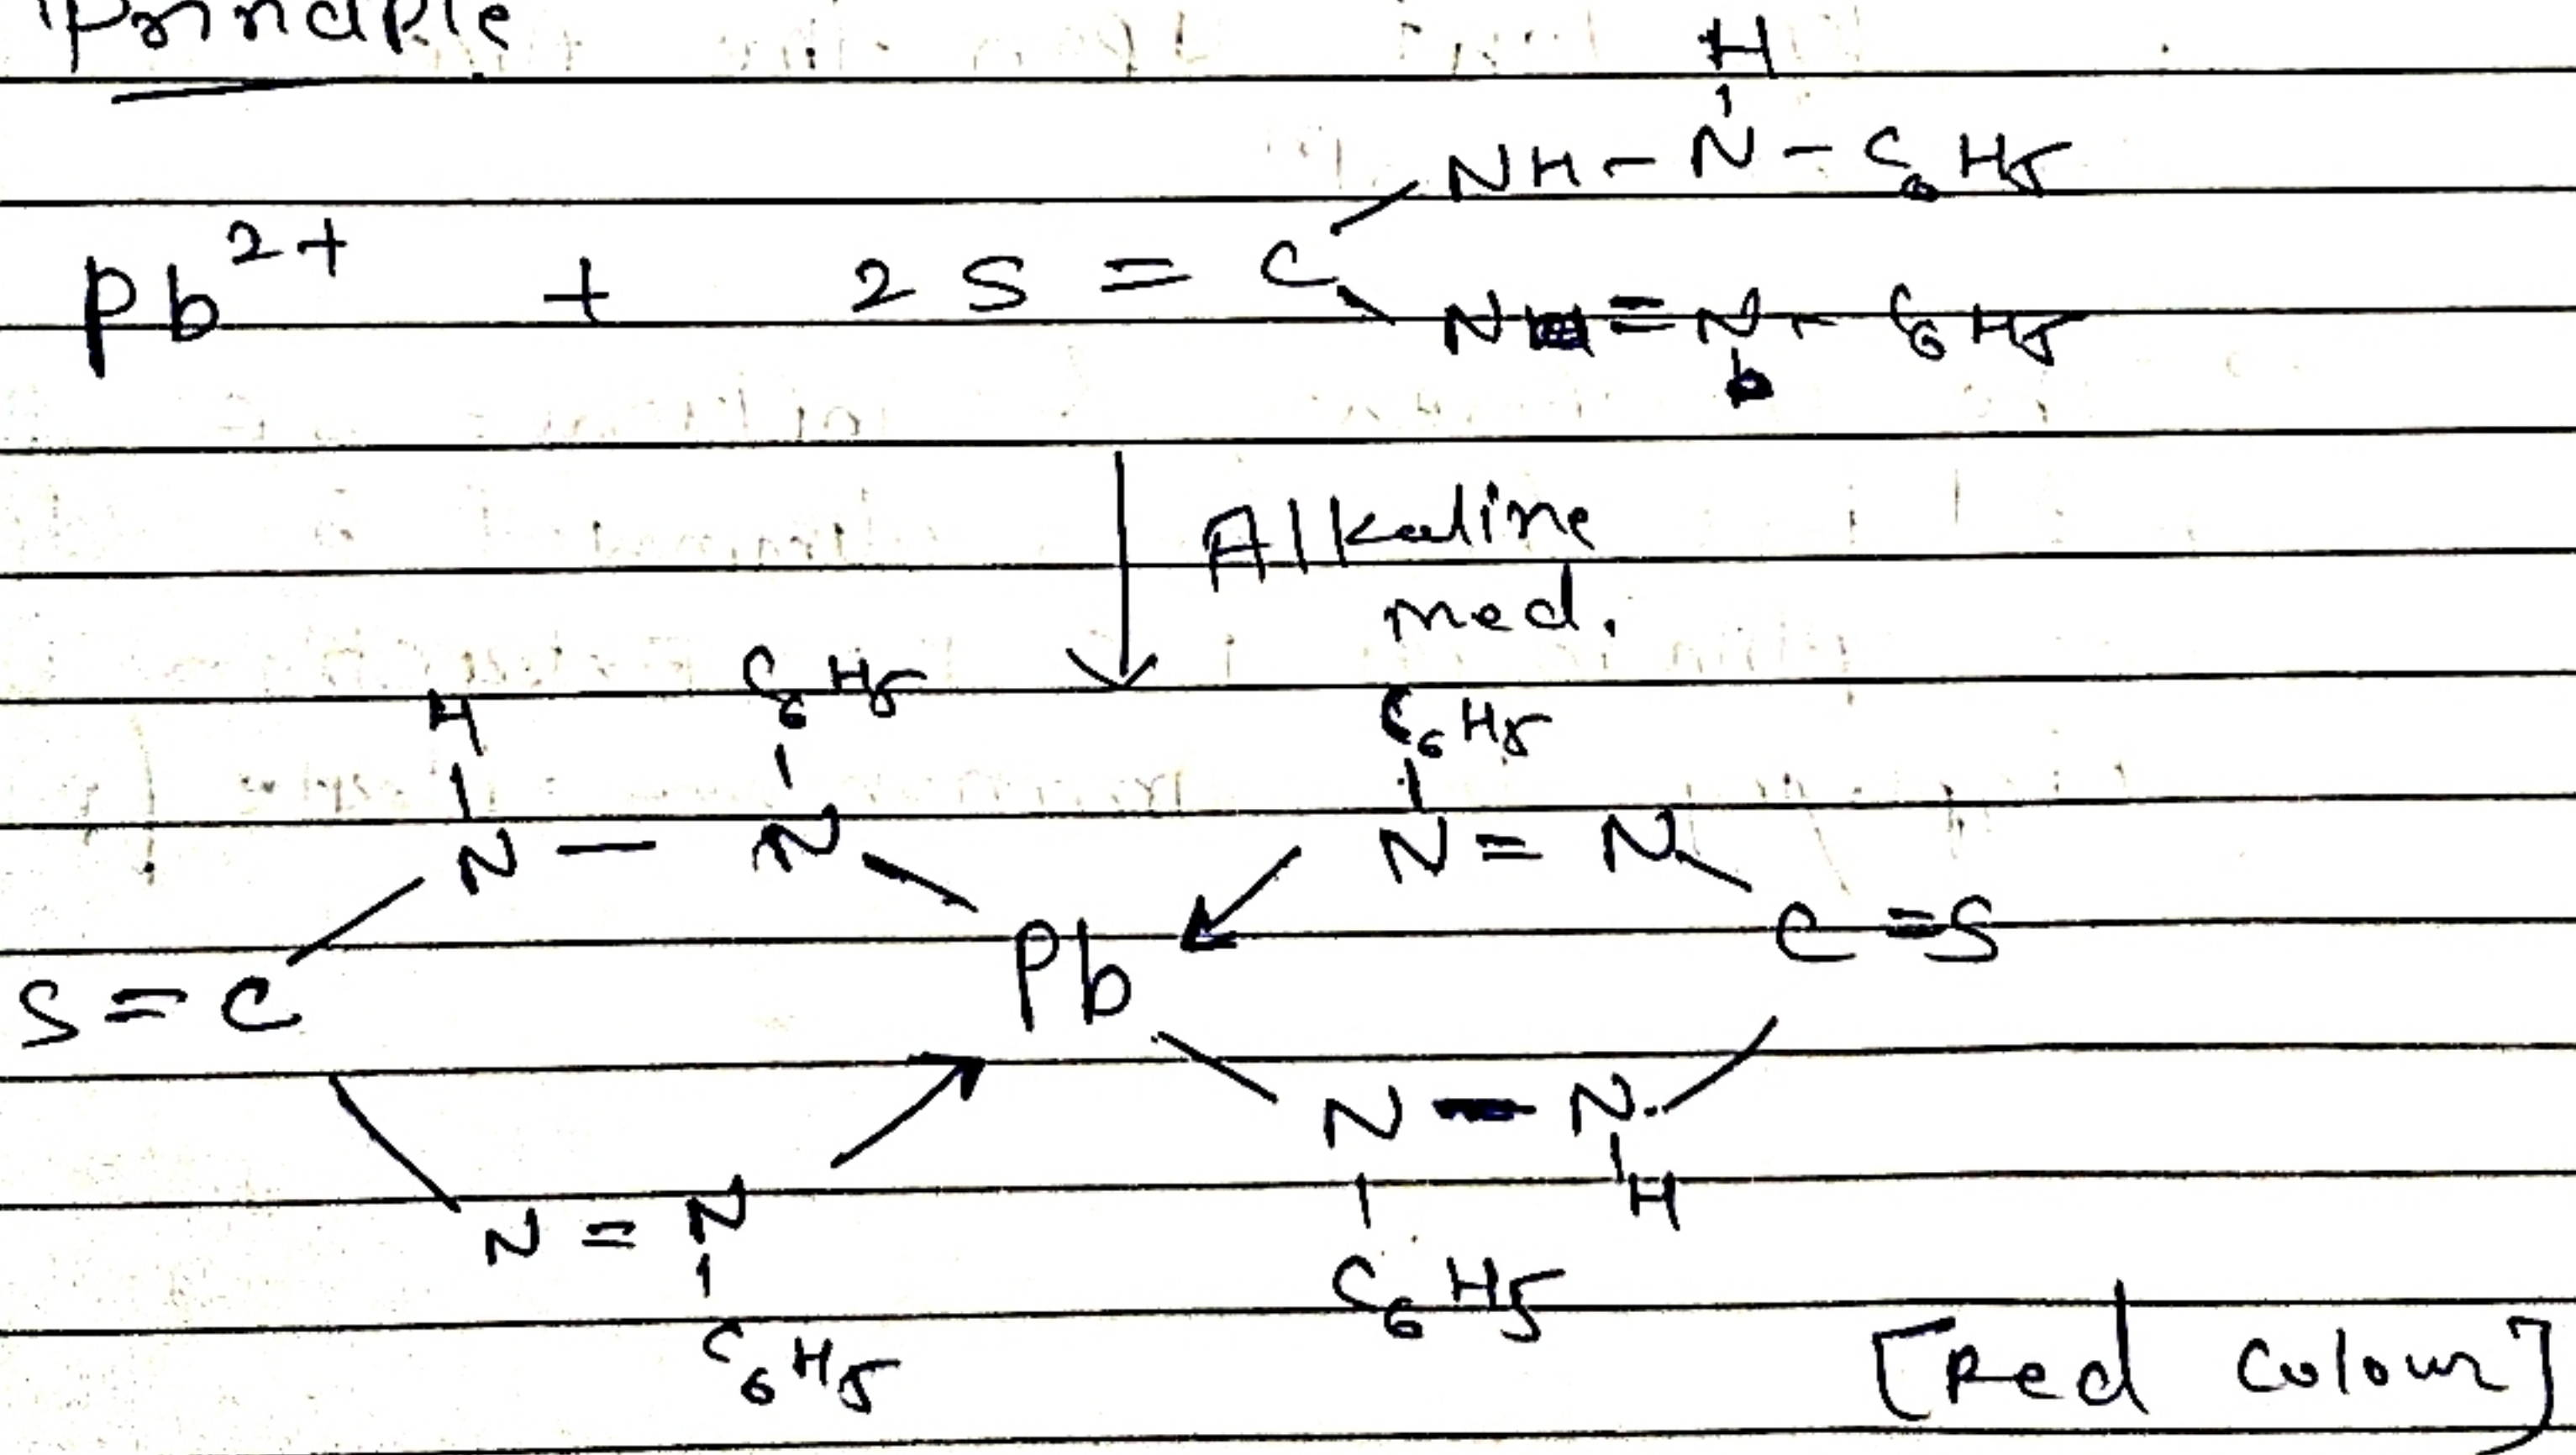 Principle
H
NH - N - C6H5
Pb2+ + 2 S = C
N = N - C6H5
Alkaline
med.
H C6H5 C6H5
N - N N = N
S = C Pb C = S
N - N
N = N H
C6H5 C6H5
[Red Colour]